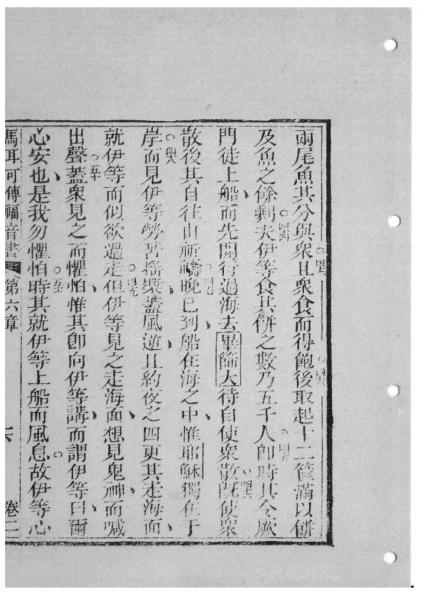 兩尾魚其分與衆且衆食而得飽後取起十二筐滿以餅
及魚之餘剩夫伊等食其餅之數乃五千人卽時其令厥
門徒上船而先開行過海去畢篩大待自使衆散旣使衆
散後其自往山祈禱晚已到船在海之中惟耶穌獨在于
岸而見伊等勞苦搖槳蓋風逆且約夜之四更其走海面
就伊等而似欲過走但伊等見之走海面想見鬼神而喊
出聲蓋衆見之而懼怕惟其卽向伊等講而謂伊等曰爾
心安也是我勿懼怕時其就伊等上船而風息故伊等心
馬耳可傳福音書 第六章 六 卷二